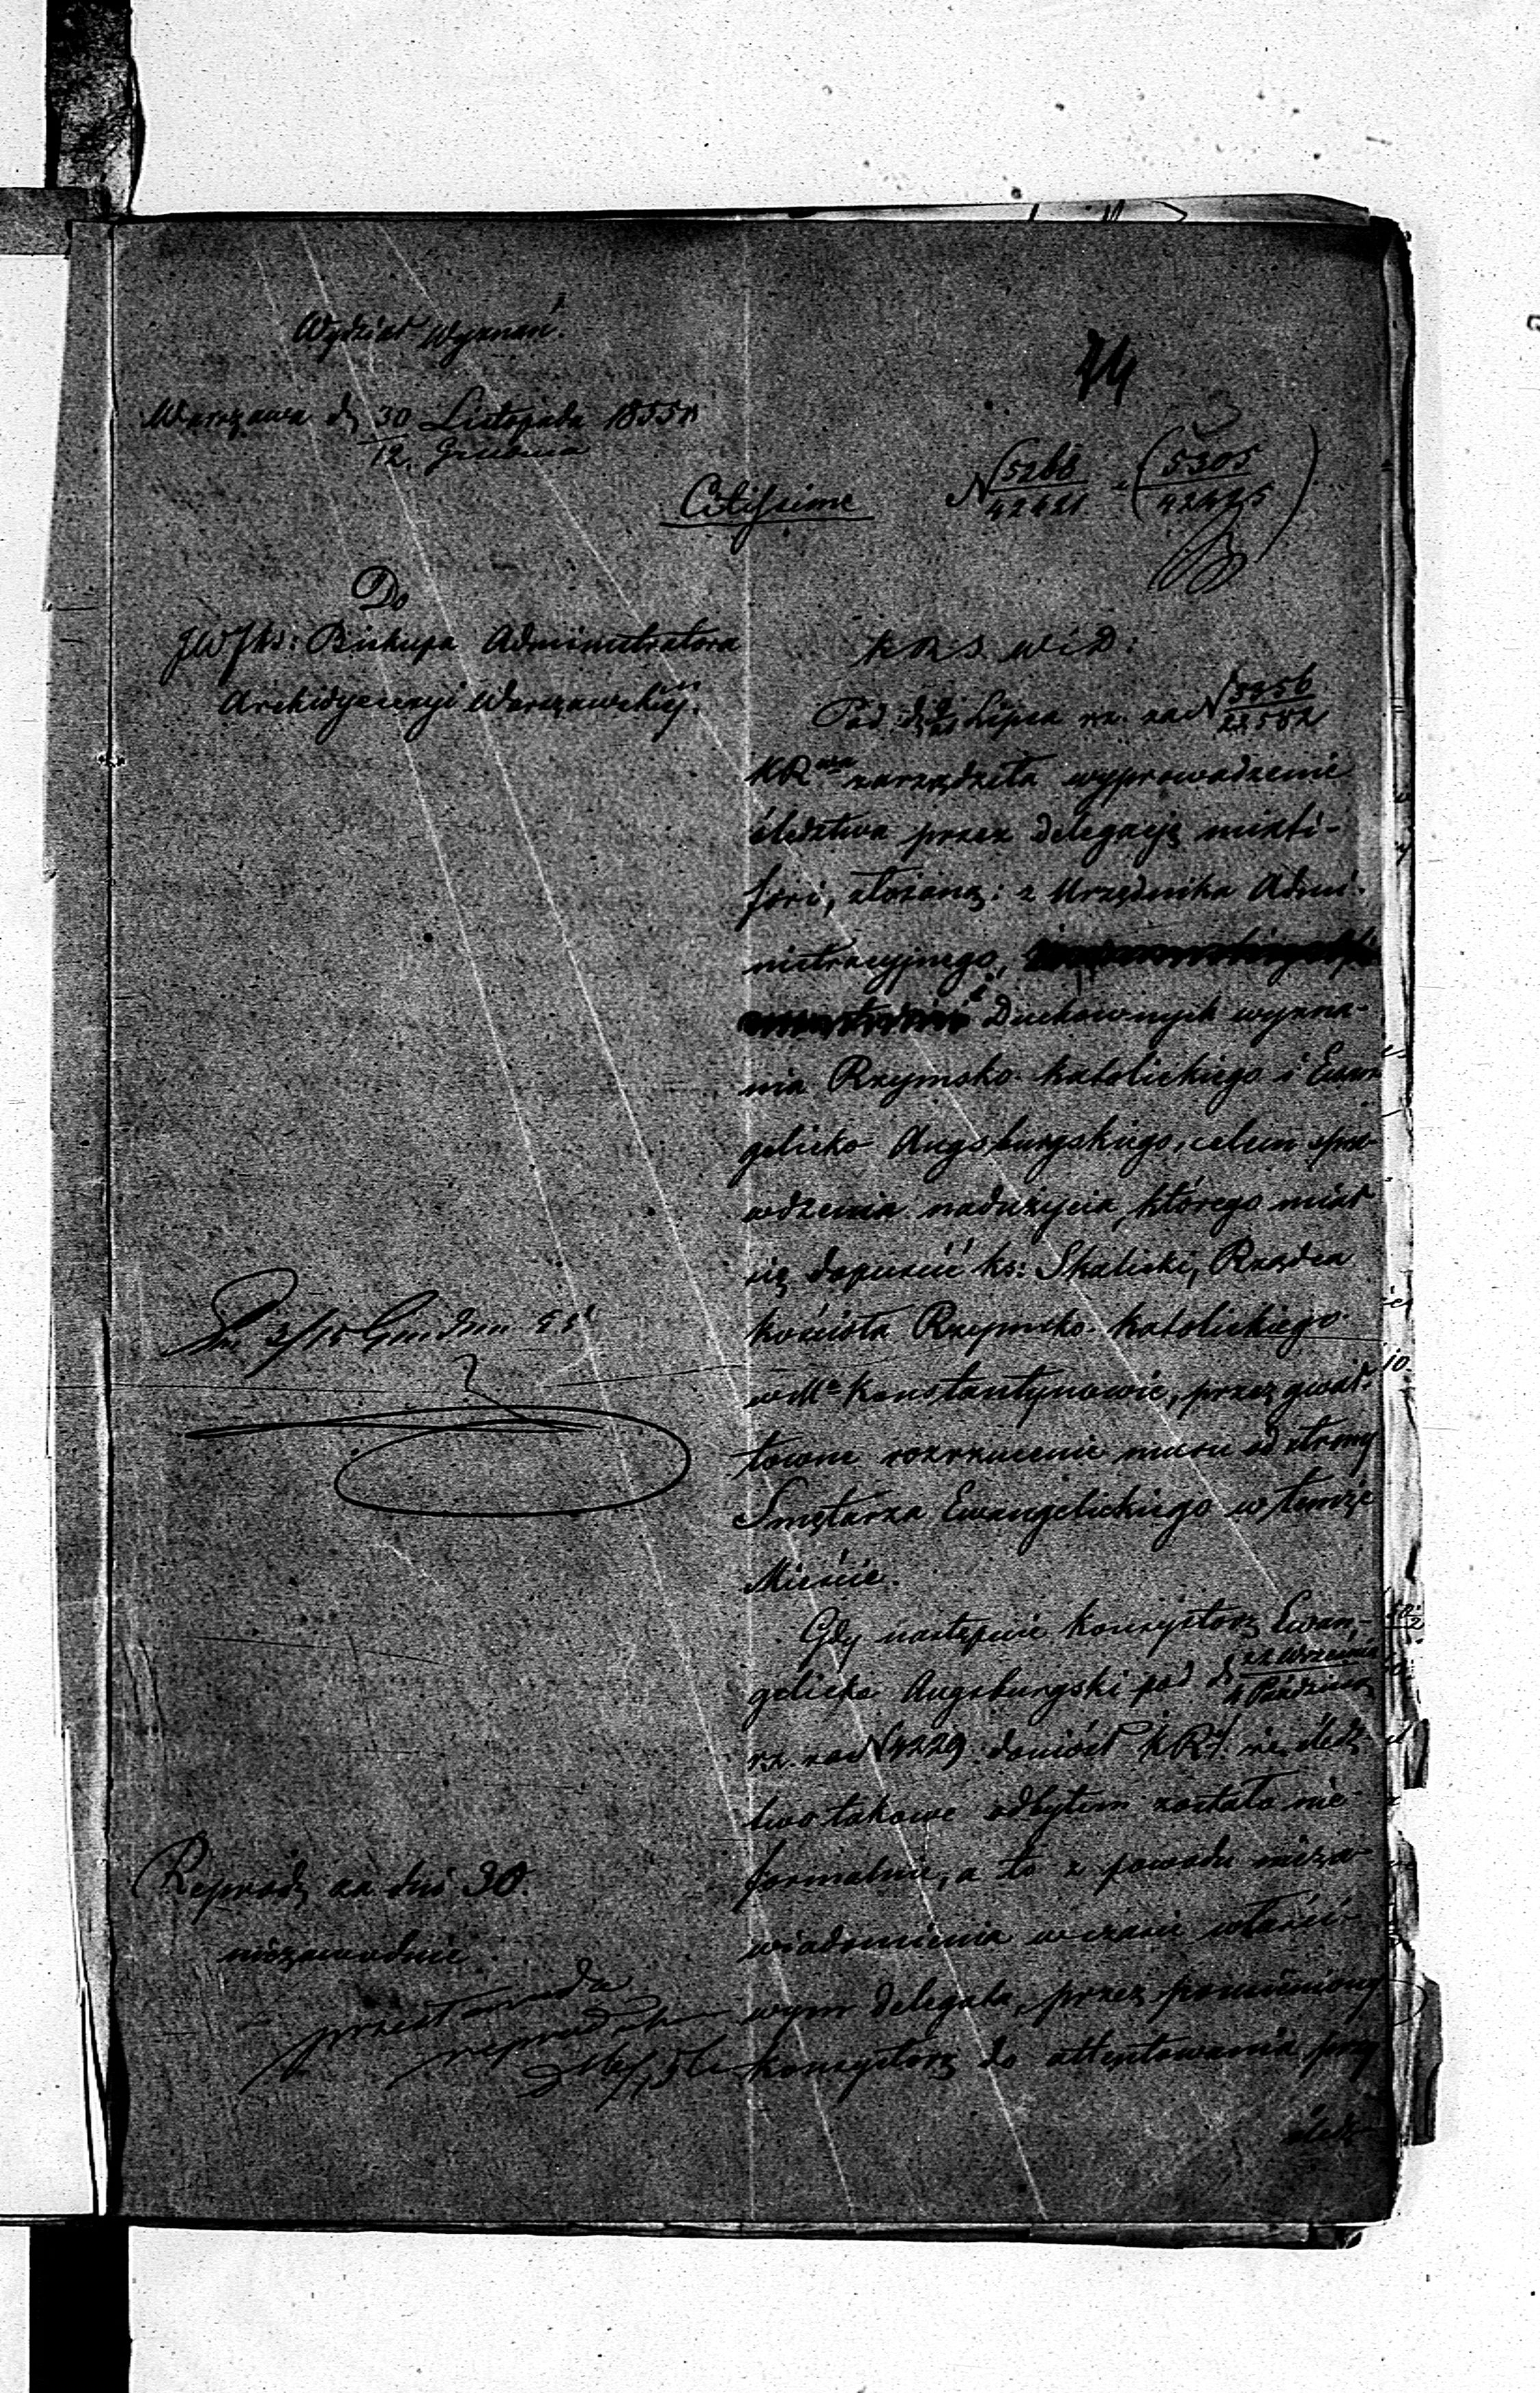 Wydział Wyznań.
74
Warszawa d. 30 Listopada 1855 r.
12. Grudnia
Citissime
N 5268 (5305
42421 42425)
Do
JWJks: Biskupa Administratora
Archidyecezyi Warszawskiej.
K R S W i D:
Pod d. Lipca rz. za N 3256
22582
KRwa zarządziła wyprowadzenie
śledztwa przez Delegacyę mixti-
fori, złożoną: z Urzędnika Admi-
nistracyjnego,
i
Duchownych wyzna-
nia Rzymsko-katolickiego i Ewan
gelicko Augsburgskiego, celem spra-
wdzenia nadużycia, którego miał
się dopuścić ks: Skalicki, Rządca
kościoła Rzymsko-katolickiego
w Me Konstantynowie, przez gwał-
towne rozrzucenie muru od strony
Smętarza Ewangelickiego w temże
Mieście.
Gdy następnie Konsystorz Ewan-
gelicko Augsburgski pod d. 22 Września
4 Październ.
rz. za N 4229 doniósł KR. że śledz-
two takowe odbytem zostało nie-
formalnie, a to z powodu nieza-
wiadomienia w czasie właści-
wym delegata, przez pomieniony
Konsystorz do attentowania przy
śledz-
3/15 Grudnia 55
Reprodz za dni 30.
niezawodnie.